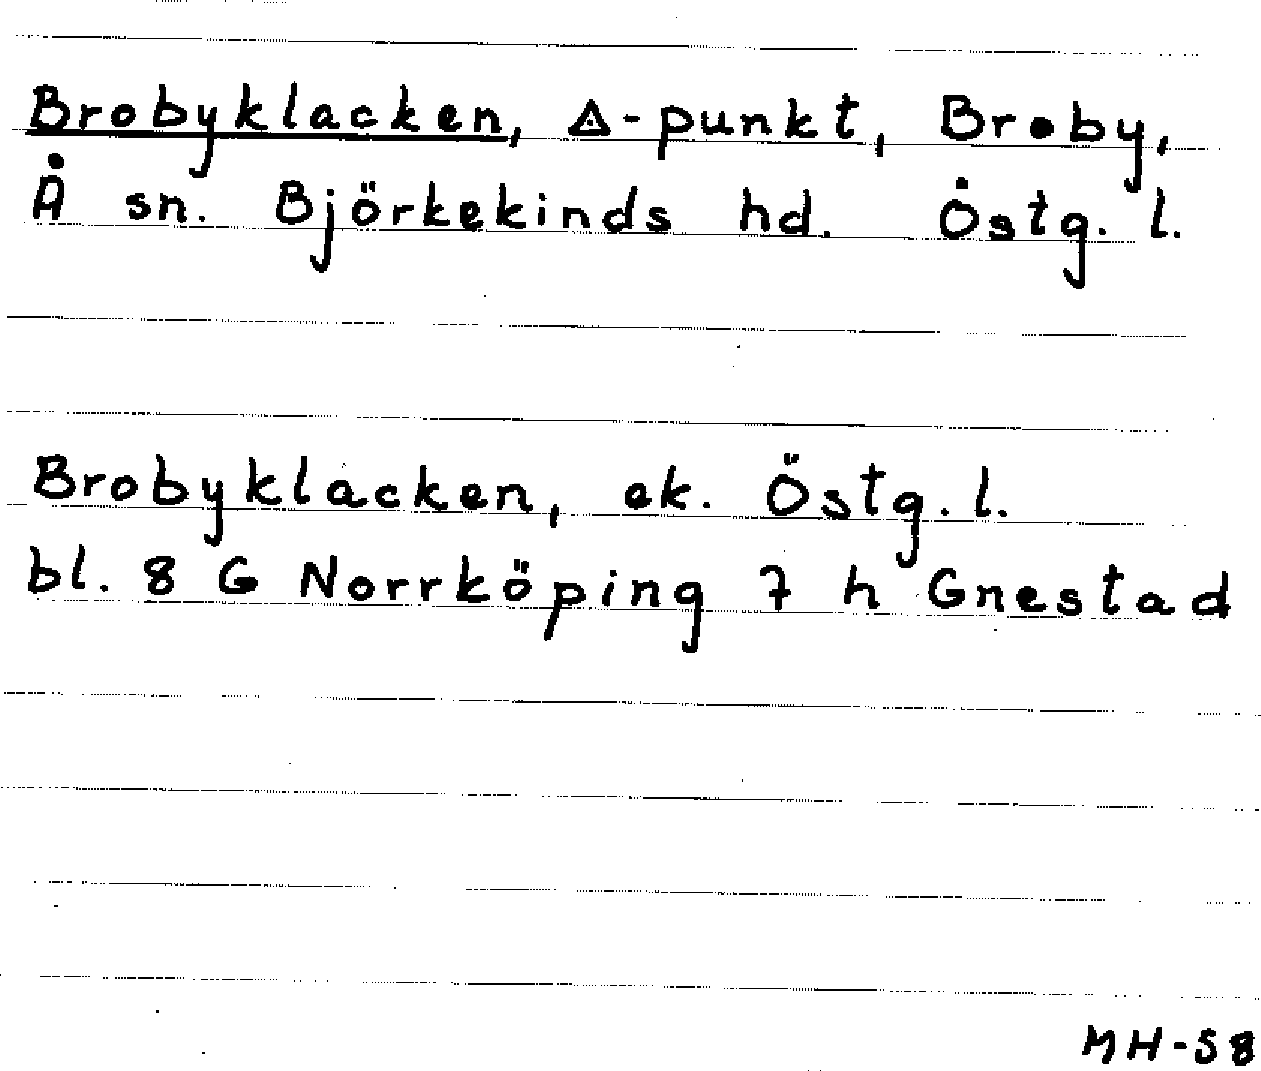 Brobyklacken, △-punkt, Broby,
Å sn. Björkekinds hd. Östg. l.
Brobyklacken, ek. Östg. l.
bl. 8 G Norrköping 7 h Gnestad
MH-58